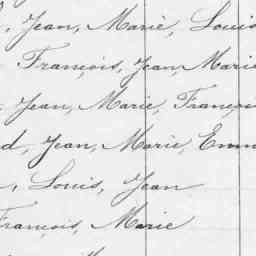 , Jean, Marie, Louis
François, Jean Marie
, Jean, Marie, François
d, Jean, Marie, Emm
, Louis, Jean
François, Marie